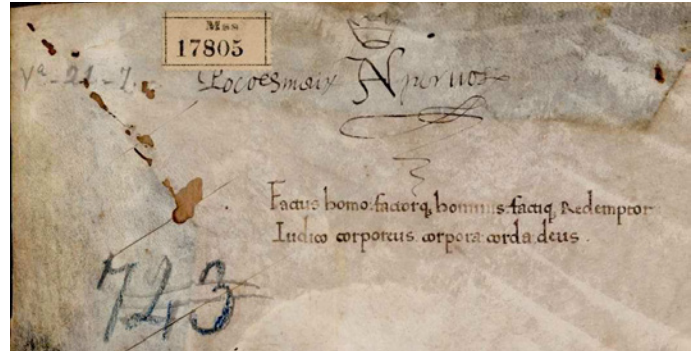 Mss
17805
Vª-21-7.
Factus homo: factorq, hominis: factiq, Redemptor
Iudico corporeus: corpora corda deus.
743